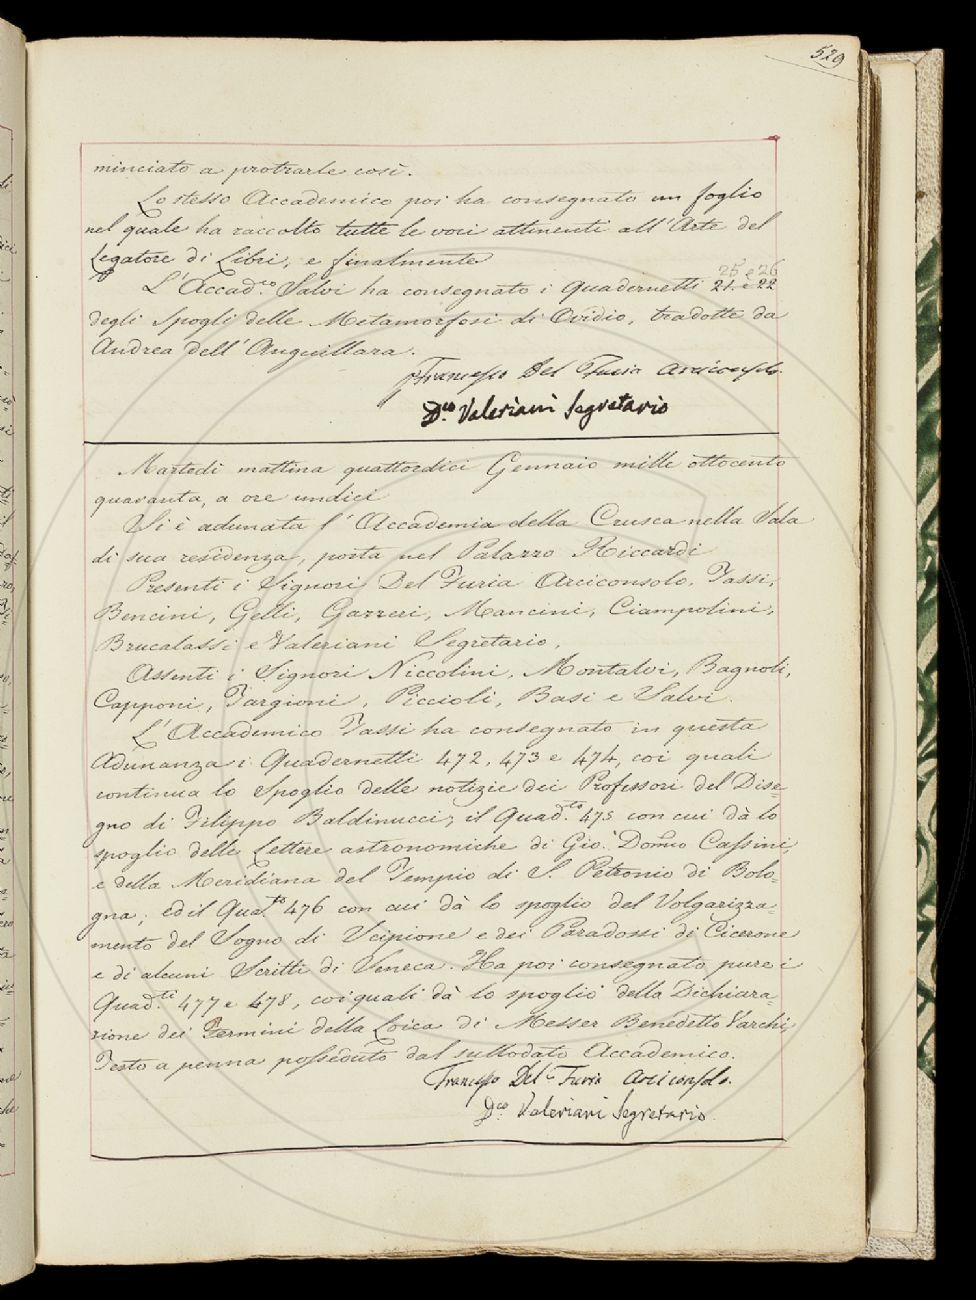 529
minciato a protrarle così.
Lo stesso Accademico poi ha consegnato un foglio
nel quale ha raccolto tutte le voci attinenti all'Arte del
Legatore di Libri, e finalmente
25 e 26
L'Accad.co Salvi ha consegnato i Quadernetti 21. e 22
degli Spogli delle Metamorfosi di Ovidio, tradotte da
Andrea dell'Anguillara.
Francesco Del Furia Arciconsolo.
Dco. Valeriani Segretario
Martedì mattina quattordici Gennaio mille ottocento
quaranta, a ore undici
Si è adunata l'Accademia della Crusca nella Sala
di sua residenza, posta nel Palazzo Riccardi
Presenti i Signori Del Furia Arciconsolo, Tassi,
Bencini, Gelli, Gazzeri, Mancini, Ciampolini,
Brucalassi e Valeriani Segretario,
Assenti i Signori Niccolini, Montalvi, Bagnoli,
Capponi, Targioni, Piccioli, Basi e Salvi.
L'Accademico Tassi ha consegnato in questa
Adunanza i Quadernetti 472, 473 e 474, coi quali
continua lo Spoglio delle notizie dei Professori del Dise=
gno di Filippo Baldinucci; il Quad.to 475 con cui dà lo
spoglio delle Lettere astronomiche di Gio. Domco Cassini,
e della Meridiana del Tempio di S. Petronio di Bolo=
gna; ed il Quad.to 476 con cui dà lo spoglio del Volgarizza=
mento del Sogno di Scipione e dei Paradossi di Cicerone
e di alcuni Scritti di Seneca. Ha poi consegnato pure i
Quad.ti 477 e 478, coi quali dà lo spoglio della Dichiara=
zione dei Termini della Loica di Messer Benedetto Varchi,
Testo a penna posseduto dal sullodato Accademico.
Francesco Del Furia Arciconsolo.
Dco. Valeriani Segretario.